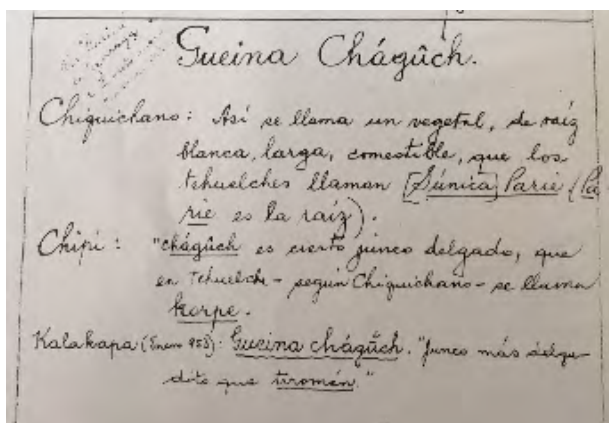 Gueina Chágûch.
Chiquichano: Así se llama un vegetal, de raíz
blanca, larga, comestible, que los
tehuelches llaman [Súnica] Parie (Pa
rie es la raíz).
Chipí: "chágûch es cierto junco delgado, que
en Tehuelche - según Chiquichano - se llama
korpe.
Kalakapa (Enero 958): Gueina chágûch. "Junco más delga-
dito que tromén."